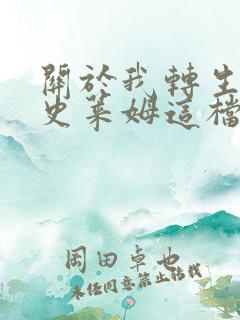 關於我轉生
史萊姆這檔
岡田卓也
未經同意禁止轉載